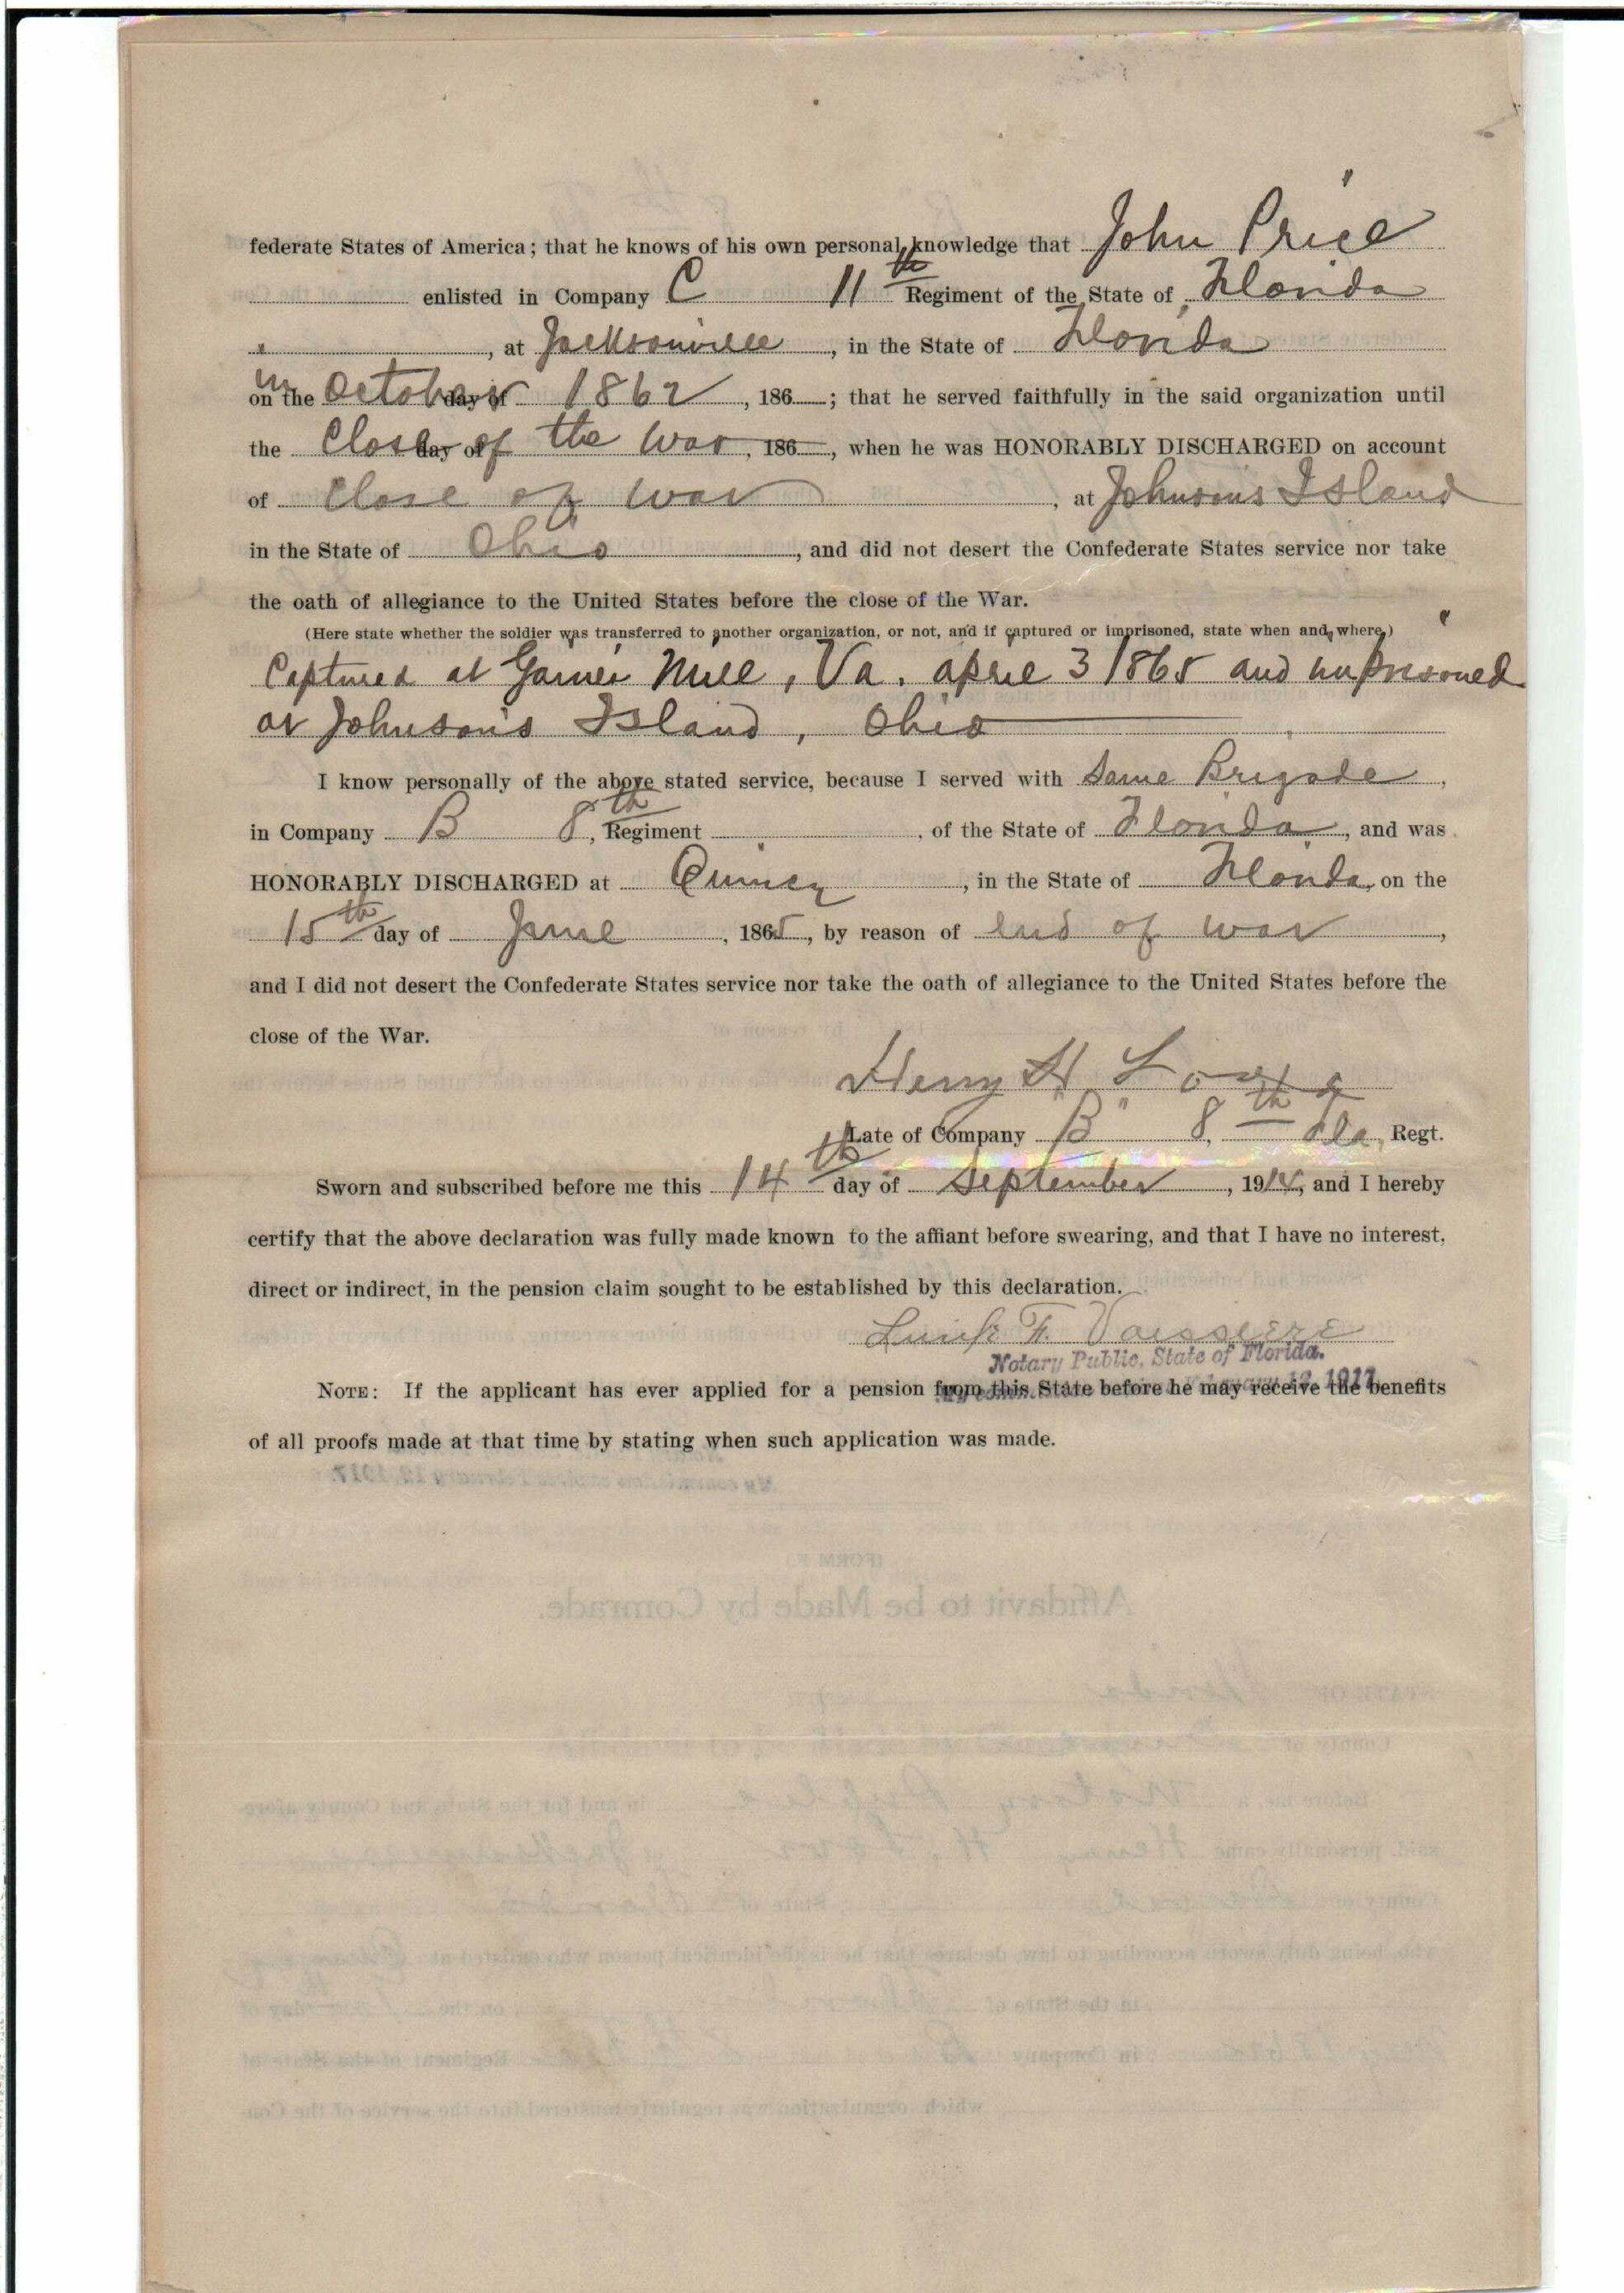 federate States of America; that he knows of his own personal knowledge that John Price
enlisted in Company C 11th Regiment of the State of Florida
, at Jacksonville, in the State of Florida
in on the October day of 1862, 186 ; that he served faithfully in the said organization until
the Close day of of the War, 186 , when he was HONORABLY DISCHARGED on account
of Close of War, at Johnsons Island
in the State of Ohio, and did not desert the Confederate States service nor take
the oath of allegiance to the United States before the close of the War.
(Here state whether the soldier was transferred to another organization, or not, and if captured or imprisoned, state when and where.)
Captured at Mill, Va. April 3 1865 and imprisoned
at Johnson's Island, Ohio
I know personally of the above stated service, because I served with Same Brigade,
in Company B 8th, Regiment , of the State of Florida, and was
HONORABLY DISCHARGED at Quincy, in the State of Florida, on the
15th day of June, 1865, by reason of End of War,
and I did not desert the Confederate States service nor take the oath of allegiance to the United States before the
close of the War.
Henry H.
Late of Company "B" 8th Fla, Regt.
Sworn and subscribed before me this 14th day of September, 1914, and I hereby
certify that the above declaration was fully made known to the affiant before swearing, and that I have no interest,
direct or indirect, in the pension claim sought to be established by this declaration.
F. Vaissiere
Notary Public, State of Florida.
NOTE: If the applicant has ever applied for a pension from this State before he may receive the benefits
of all proofs made at that time by stating when such application was made.